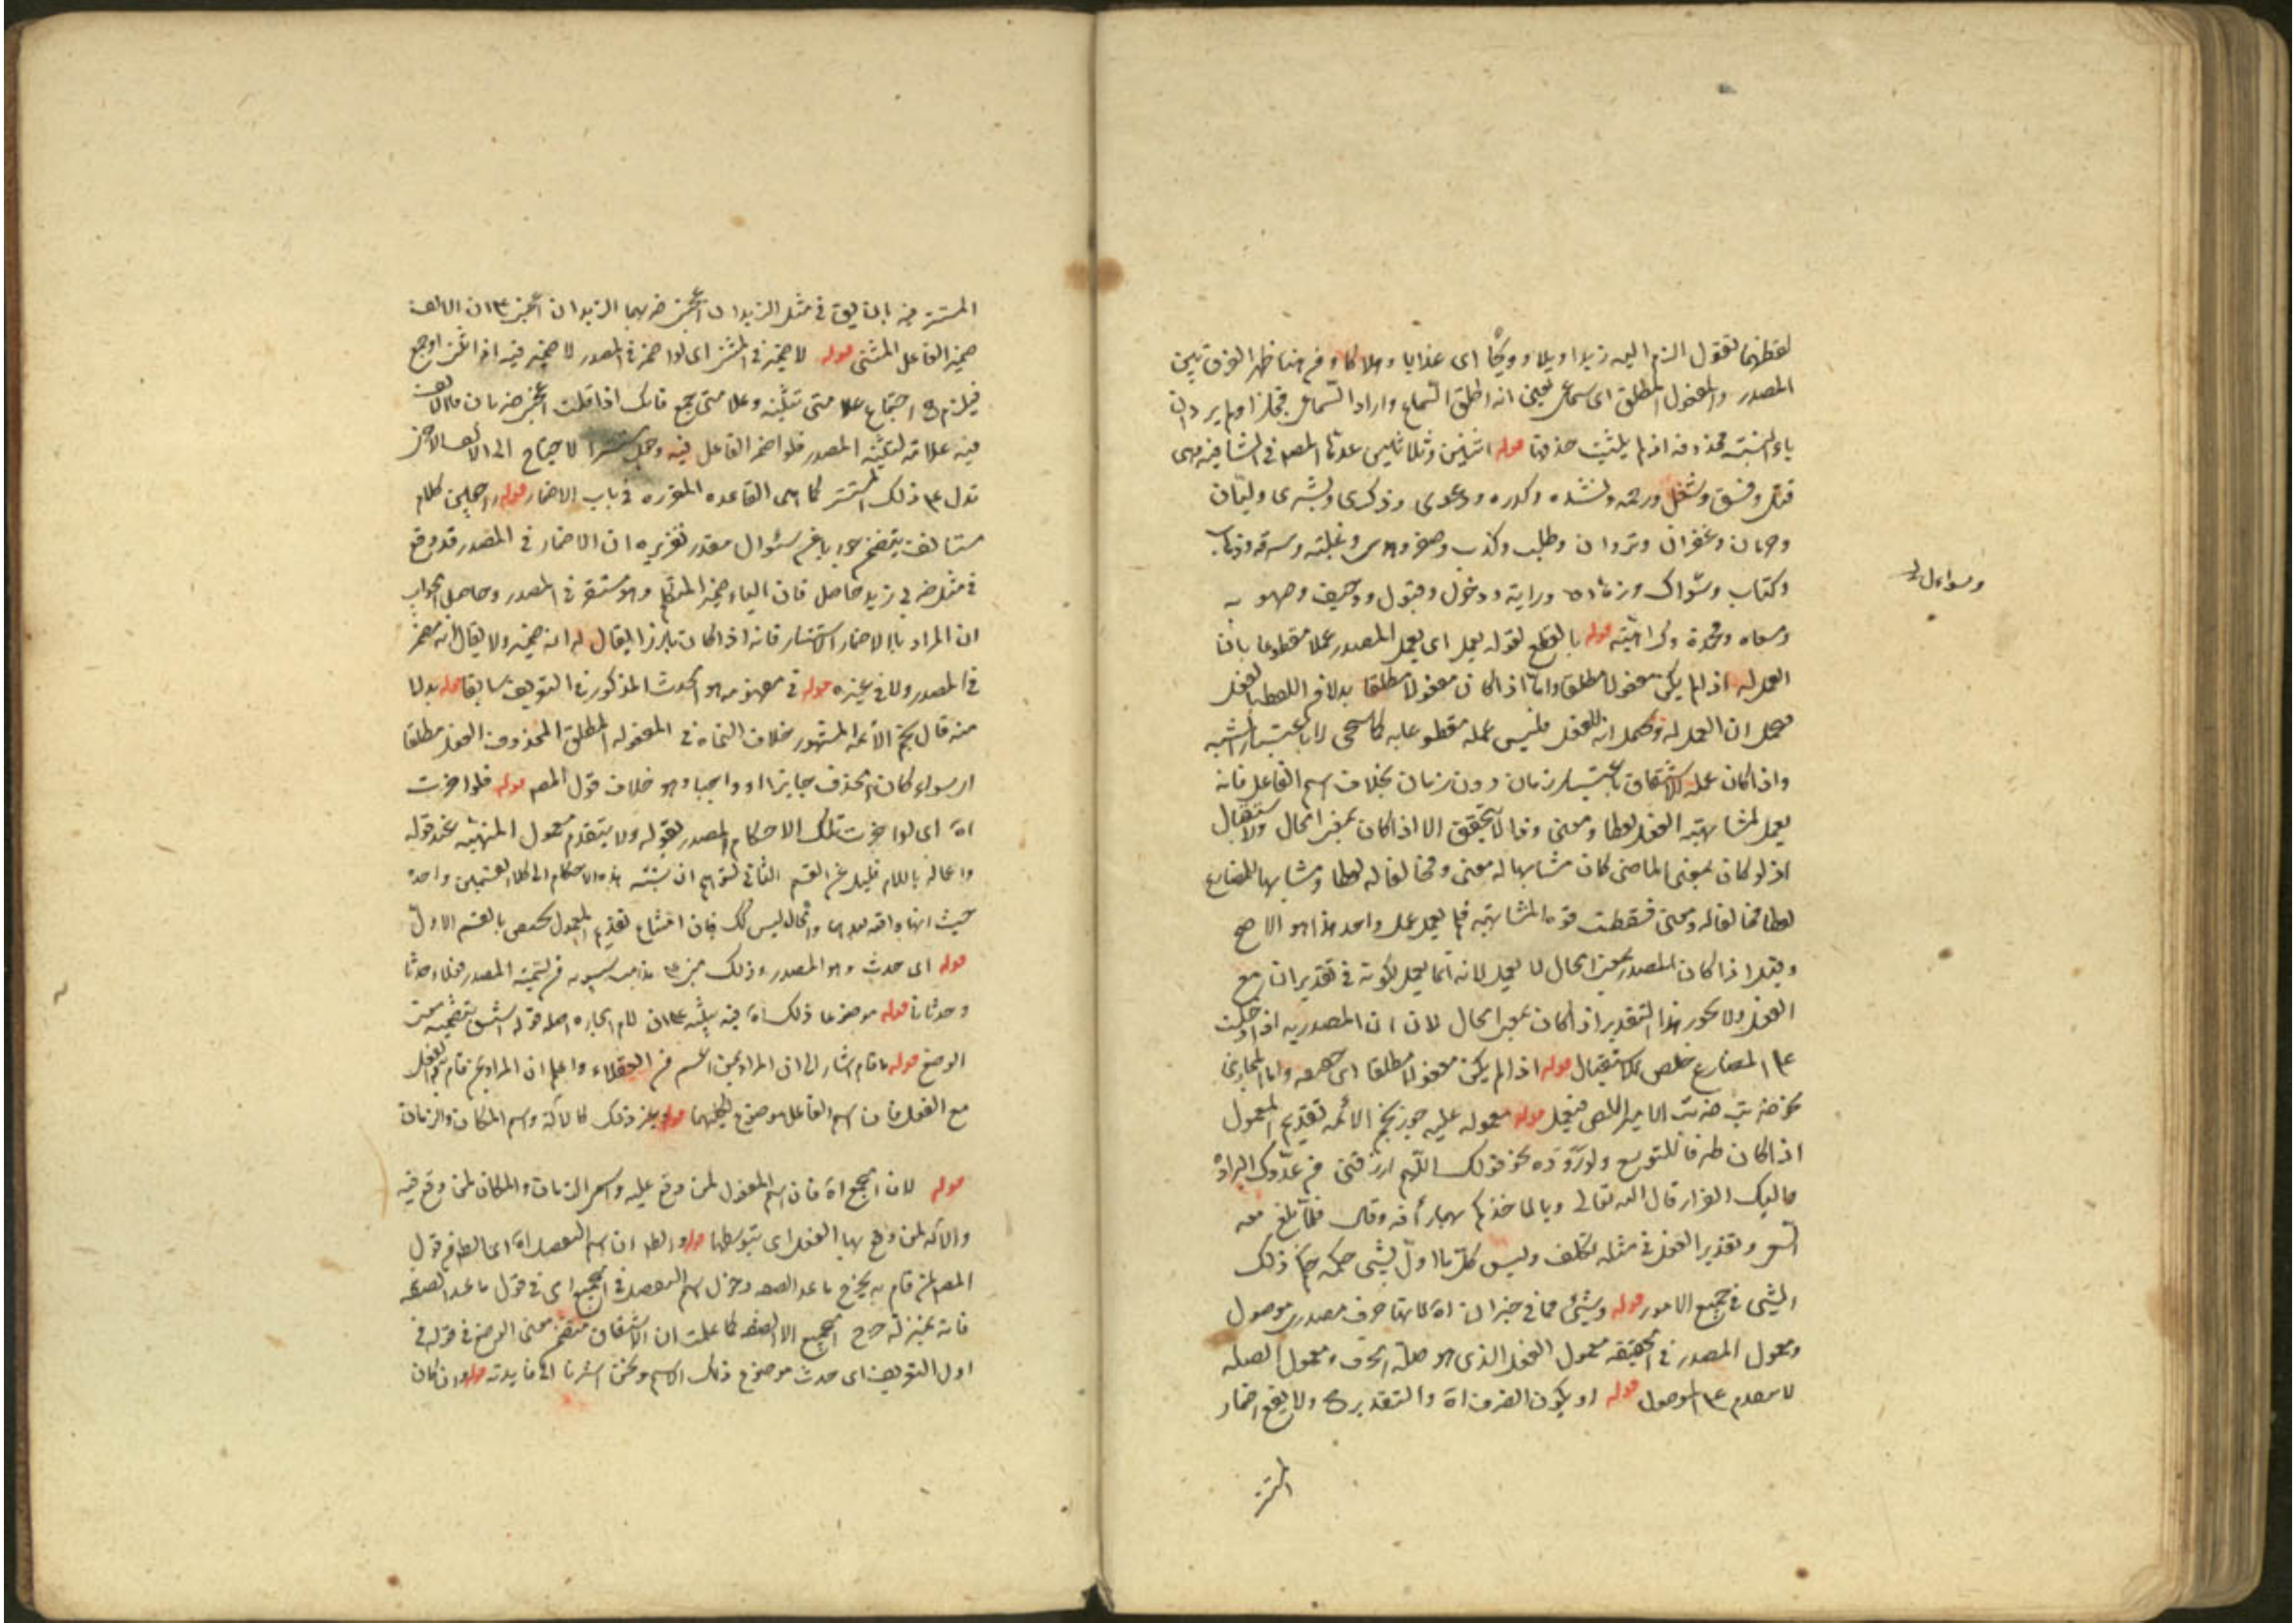 لفظهما تقول الزم الله زيدا ويلا وويحًا اى عذابا وهلاكا ومن هنا ظهر الفرق بين
المصدر والمفعول المطلق اى سماعى يعنى انه اطلق السماع واراد السماعى مجازا ولم يرد ان
ياء النسبة محذوفة اذ لم يثبت حذفها قوله اثنين وثلاثين عدها المصنف فى الشافية وهى
قتل وفسق وشغل ورحمة ونشده وكدره ودعوى وذكرى وبشرى وليّان
وحرمان وغفران ونزوان وطلب وكذب وصغر وهدى وغلبة وسرقة وذهاب
وكتاب وسؤال وزهاده ودراية ودخول وقبول ووجيف وصهوبة
وسؤال
ومسعاه ومحمدة وكراهية قوله بالقطع لقوله يعمل اى يعمل المصدر عملا مقطوعا بان
العمل له اذ لم يكن مفعولا مطلقا واما اذا كان مفعولا مطلقا بدلا من اللفظ بالفعل
فيحتمل ان العمل له ويحتمل انه للفعل فليس عمله مقطوعا به كما سيجئ لا باعتبار الشبه
واذا كان عمله للاشتقاق باعتبار زمان دون زمان بخلاف اسم الفاعل فانه
يعمل لمشابهته الفعل لفظا ومعنى وذا لا يتحقق الا اذا كان بمعنى الحال والاستقبال
اذ لو كان بمعنى الماضى كان مشابها له معنى ومخالفا له لفظا ومشابها للمضارع
لفظا مخالفا له ومعنى فسقطت قوة المشابهة فلم يعمل عمل واحد هذا هو الاصح
وقيل اذا كان المصدر بمعنى الحال لا يعمل لانه انما يعمل لكونه فى تقدير ان مع
الفعل ولا يجوز هذا التقدير اذا كان بمعنى الحال لان ان المصدرية اذا دخلت
على المضارع خلص للاستقبال قوله اذا لم يكن مفعولا مطلقا اى حقيقة واما المجازى
نحو ضربت ضرب الامير اللص فيعمل قوله معموله عليه جوز نجم الائمه تقديم المعمول
اذا كان ظرفا للتوسع ولوروده نحو قولك اللهم ارزقنى من عدوك البراءة
واليك الفرار قال الله تعالى ولا تاخذكم بهما رأفة وقال فلما بلغ معه
السعى وتقدير الفعل فى مثله تكلف وليس كل ما اول بشئ حكمه حكم ذلك
الشئ فى جميع الامور قوله وشئ مما فى حيز ان اه لانها حرف مصدرى موصول
ومعمول المصدر فى الحقيقه معمول الفعل الذى هو صلة الحرف ومعمول الصلة
لا يتقدم على الموصول قوله او يكون الضرب اه والتقدير ولا يقع اضمار
المستتر
المستتر فيه بان يق فى مثل الزيدان اعجبنى ضربهما الزيدان اعجبنى على ان الالف
ضمير الفاعل المثنى قوله لاضمر فى المثنى اى لو اضمر فى المصدر لاضمر فيه اذا ثنى او جمع
فيلزم ح اجتماع علامتى تثنيه وعلامتى جمع فانك اذا قلت اعجبنى ضربان فالالف
فيه علامة لتثنيه المصدر فلو اضمر الفاعل فيه وجعل مستترا لاحتاج الى الالف الاخر
تدل على ذلك المستتر كما هى القاعده المقرره فى باب الاضمار قوله واجيب كلام
مستانف يتضمن جوابا عن سئوال مقدر تقريره ان الاضمار فى المصدر قد وقع
فى مثل ضربى زيدا حاصل فان الياء ضمير المتكلم وهو مستقر فى المصدر وحاصل الجواب
ان المراد بالاضمار الاستتار فانه اذا كان بارزا يقال له انه ضمير ولا يقال انه مضمر
فى المصدر ولا فى غيره قوله فى مفهومه هو الحدث المذكور فى التعريف سابقا قوله بدلا
منه قال نجم الائمه المشهور خلاف النحاه فى المفعول المطلق المحذوف الفعل مطلقا
اى سواء كان الحذف جايزا او واجبا وهو خلاف قول المصنف قوله فلو اخرت
اه اى لو اخرت تلك الاحكام المصدر بقوله ولا يتقدم معمول المنتهية عند قوله
واعماله باللام قليل عن القسم الثانى لتوهم ان نسبة هذه الاحكام الى كلا القسمين واحدة
حيث انها واقعه بعدهما والحال ليس كذلك فان امتناع تقديم المعمول يختص بالقسم الاول
قوله اى حدث وهو المصدر وذلك مبنى على مذهب سيبويه فى تسمية المصدر فعلا وحدثا
وحدثانا قوله موضوعا ذلك اه فيه تنبيه على ان لام الجاره صلة قوله اشتق بتضمينه معنى
الوضع قوله ما قام اشار الى ان المراد بمن اعم من العقلاء واعلم ان المراد بمن قام به الفعل
مع الفعل فان اسم الفاعل موضوع لكليهما قوله وبغير ذلك كالآلة واسم المكان والزمان
قوله لان الجميع اه فان اسم المفعول لمن وقع عليه واسم الزمان والمكان لمن وقع فيه
والآله لمن وقع بها الفعل اى بتوسطها قوله والظ ان اسم التفضيل اه اى الظ من قول
المصنف لمن قام به يخرج ما عدا الصفه ودخول اسم التفضيل فى الجميع اى فى قول ما عدا الصفة
فانه بمنزلة خرج الجميع الا الصفه كما علمت ان الاشتقاق متضمن معنى الوضع فى قوله فى
اول التعريف اى حدث موضوع ذلك الاسم ونحن اشرنا الى فايدته قوله وان كان